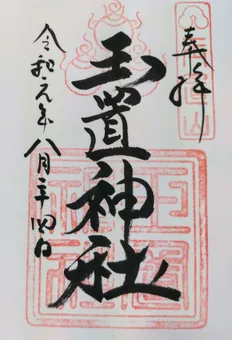 奉拝
玉置神社
令和元年八月二十四日